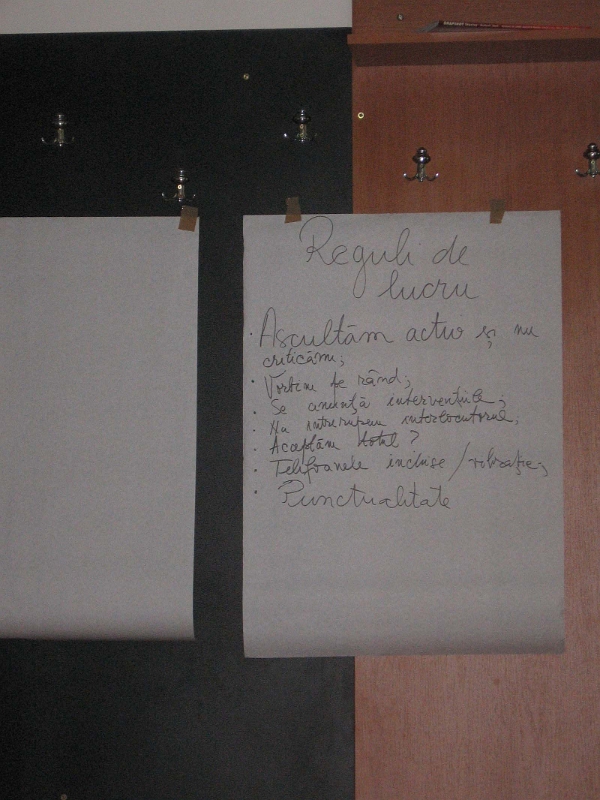 Reguli de
lucru
· Ascultăm activ și nu
criticăm;
· Vorbim pe rând;
· Se anunță intervențiile;
· Nu întrerupem interlocutorul;
· Acceptăm totul?
· Telefoanele închise / vibrație;
· Punctualitate